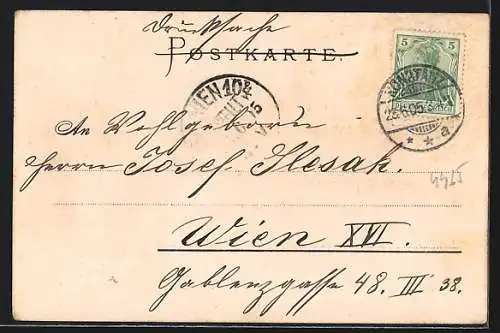 Drucksache
POSTKARTE.
5 5
KONSTANZ
* * a
WIEN 104
An Wohlgeboren
Herrn Josef Slesak.
4425
Wien XVI.
Gablenzgasse 48. III 38.